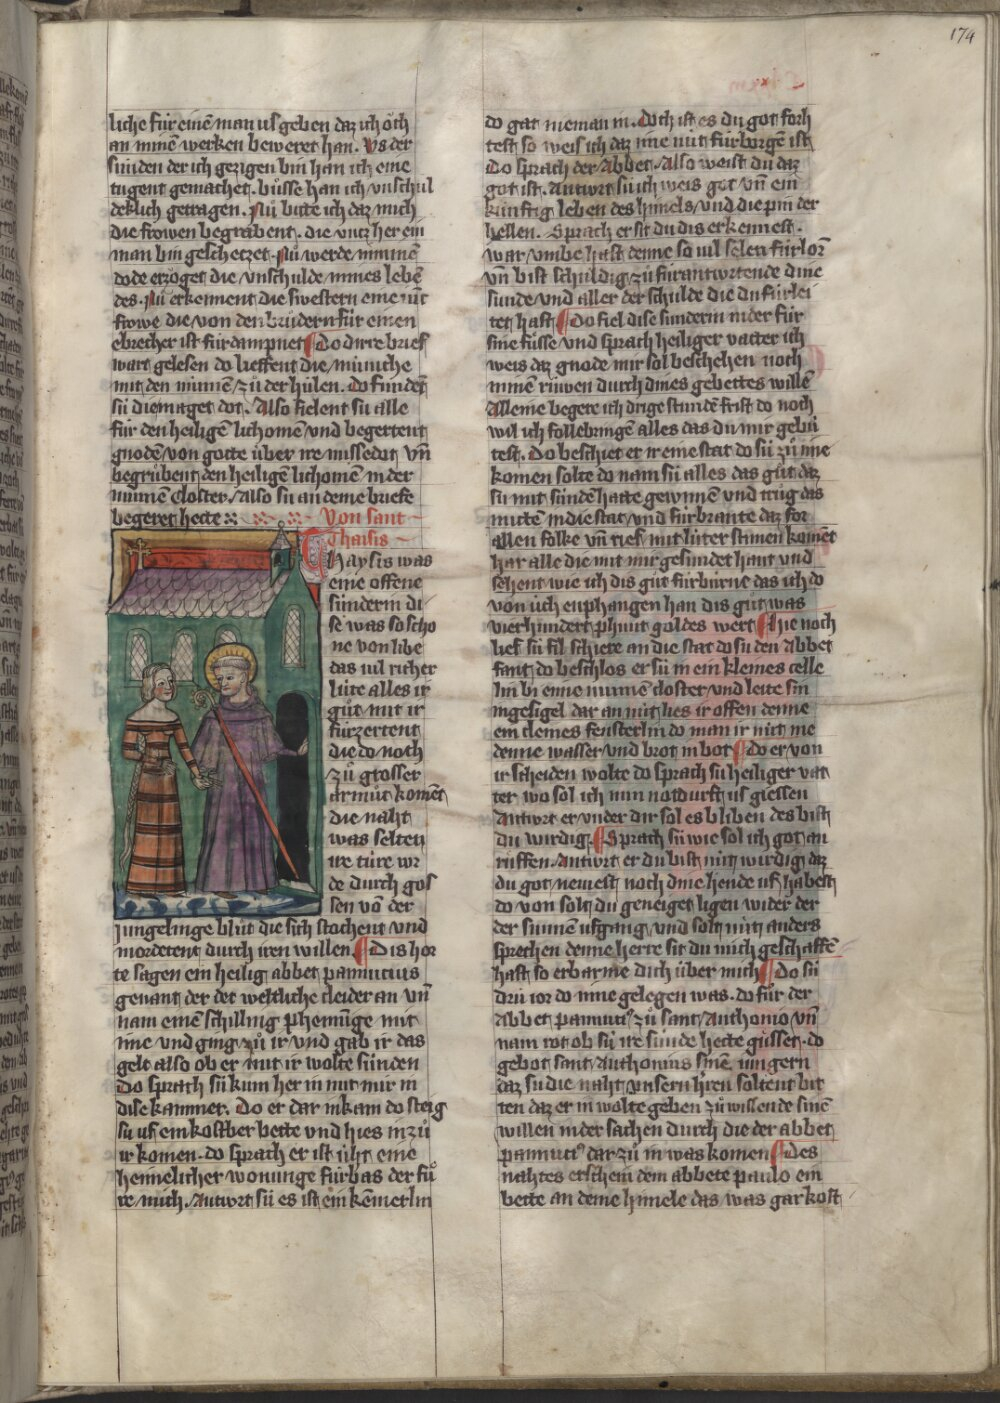 174
liche für einē man us geben daz ich öch
an minen werken beweret han. Vs der
sünden der ich gezigen bin han ich eine
tugent gemachet. büsse han ich vnschul
deklich getragen. Nů bitte ich daz mich
die frowen begrabent. die vntz her ein
man bin geschetzet. Nů werde in minem
dode erzöget die vnschulde mines lebē
des. Nů erkennent die swestern eine
frowe die von den brüdern für einen
ebrecher ist fürdampnet Do dirre brief
wart gelesen do lieffent die müniche
mit den nunnē zů der hülen. Do fundēt
sü die maget dot. Also fielent sü alle
für den heiligē lichomē und begertent
gnodē von gotte über ire missedat vn̄
begrůbent den heiligē lichomē in der
nunnen closter. Also sü an deme briefe
begeret hette Von sant
Thaisis
Thaysis was
eine offene
sünderin di
se was so scho
ne von libe
das vil richer
lüte alles ir
gůt mit ir
fürzertent
die do noch
zů grosser
armůt komēt
die naht
was selten
ire türe wr
de durch gos
sen vō der
jungelinge blůt die sich stochent und
mordetent durch iren willen Dis hor
te sagen ein heilig abbet panuncius
genant der det weltliche cleider an vn̄
nam einē schilling phenninge mit
ime und ging zů ir vnd gab ir das
gelt also ob er mit ir wolte sünden
Do sprach sü kum her in mit mir in
dise kammer. Do er dar in kam do steig
sü uf ein kostber bette vnd hies in zů
ir komen. do sprach er ist üht eine
heimelicher wonunge fürbas der fů
re mich. Antwrt sü es ist ein kēmerlin
do gat nieman in. Doch ist es du got förh
test so weis ich daz ime nüt fürborgē ist
Do sprach der Abbet. Also weist du daz
got ist. Antwrt sü ich weis got vn̄ ein
künftig leben des himels und die pin der
hellen. Sprach er sit du dis erkennest.
war vmbe hast denne so vil selen fürlorn
vn̄ bist schuldig zů fürantwrtende dine
sunde vnd aller der schulde die du fürlei
tet hast Do fiel dise sünderin nider für
sine füsse vnd sprach heiliger vatter ich
weis daz gnode mir sol beschehen noch
minē rüwen durch dines gebettes willē
Alleine begere ich drige stundē frist do noch
wil ich follebringē alles das du mir gebü
test. Do beschiet er ir eine stat do sü zů ime
komen solte do nam sü alles das gůt daz
sü mit sündē hatte gewunnē vnd trůg das
mitten in die stat vnd fürbrante daz for
allen folke vn̄ rief mit luter stimen komēt
har alle die mit mir gesündet hant vnd
sehent wie ich dis gůt fürbürne das ich do
von üch enphangen han dis gůt was
vierhundert phunt goldes wert Hie noch
lief sü fil schiere an die stat do sü den Abbet
fant do beschlos er sü in ein kleines celle
lin bi eime nunnen closter vnd leite sin
ingesigel dar an nüt lies ir offen denne
ein cleines fensterlin do man ir nüt me
denne wasser vnd brot in bot Do er von
ir scheiden wolte do sprach sü heiliger vat
ter wo sol ich min notdurft us giessen
Antwrt er vnder dir sol es bliben des bist
du wirdig Sprach sü wie sol ich got an
rüffen. Antwrt er du bist nüt wirdig daz
du got nemest noch dine hende uf habest
do von solt du geneiget ligen wider der
der sunnen ufgang vnd solt nüt anders
sprechen denne herre sit du mich geschaffē
hast so erbarme dich über mich Do sü
drü ior do inne gelegen was. do fůr der
Abbet panuncius zů sant Anthonio vn̄
nam rot ob sü ire sünde hette gůsset. do
gebot sant Anthonius sinē jungern
daz sü die naht vnsern hrren soltent bit
ten daz er in wolte geben zů wissende sinē
willen in der sachen durch die der abbet
panuncius dar zů in was komen Des
nahtes erschein dem abbete paulo ein
bette an deme himele das was gar kost